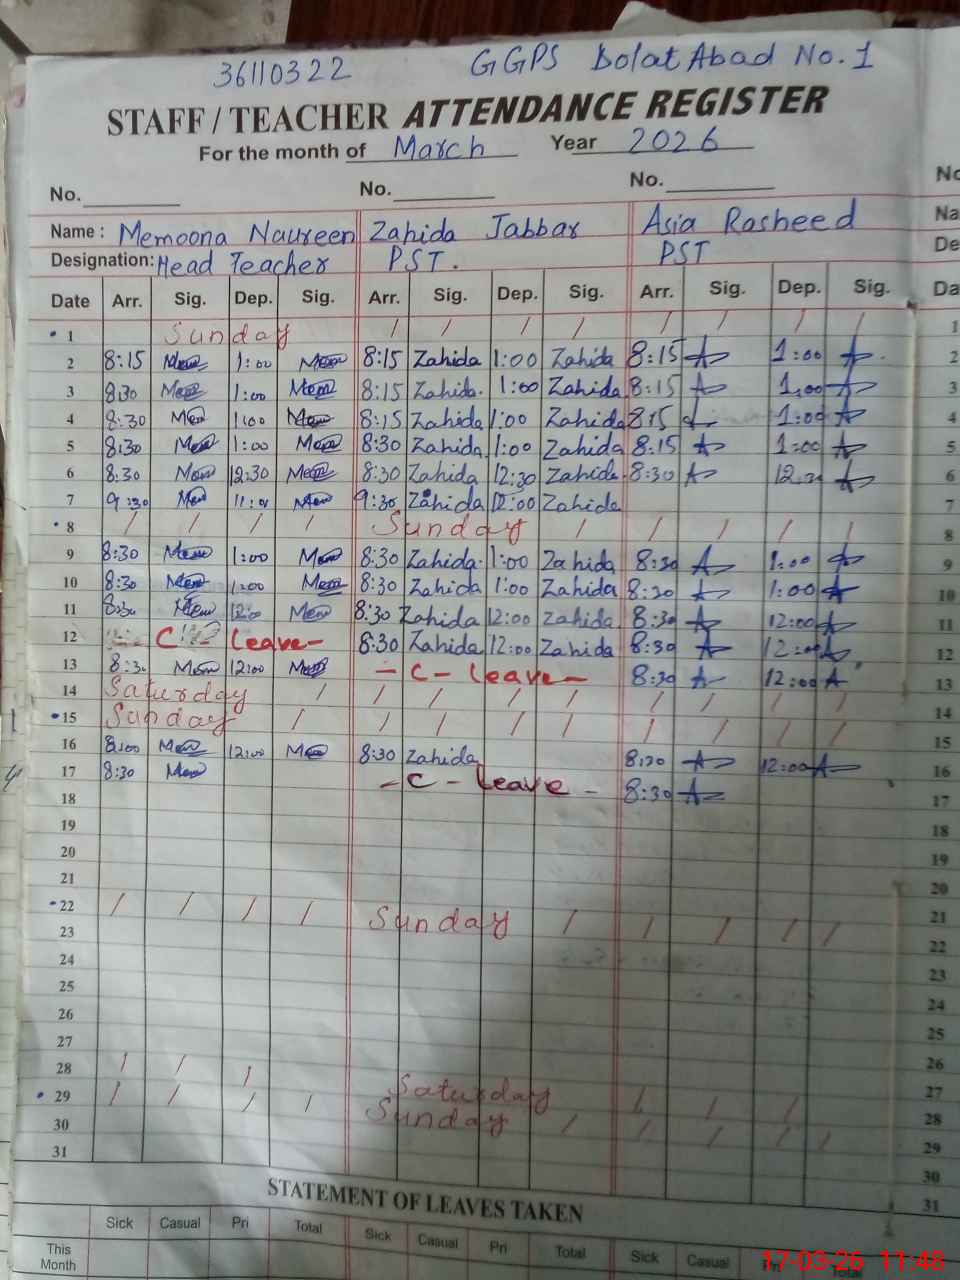 36110322 GGPS Dolat Abad No. 1
STAFF / TEACHER ATTENDANCE REGISTER
For the month of March Year 2026
No. No. No. No
Name : Memoona Naureen Zahida Jabbar Asia Rasheed Na
Designation: Head Teacher PST. PST De
Date Arr. Sig. Dep. Sig. Arr. Sig. Dep. Sig. Arr. Sig. Dep. Sig. Da
1 Sunday / / / / / / / / 1
2 8:15 Mem 1:00 Mem 8:15 Zahida 1:00 Zahida 8:15 A 1:00 A 2
3 8:30 Mem 1:00 Mem 8:15 Zahida. 1:00 Zahida 8:15 A 1:00 A 3
4 8:30 Mem 1:00 Mem 8:15 Zahida 1:00 Zahida 8:15 1:00 A 4
5 8:30 Mem 1:00 Mem 8:30 Zahida 1:00 Zahida 8:15 A 1:00 A 5
6 8:30 Mem 12:30 Mem 8:30 Zahida 12:30 Zahida. 8:30 A 12:30 A 6
7 9:30 Mem Mem 9:30 Zahida 12:00 Zahida 7
8 / / / / Sunday / / / / / 8
9 8:30 Mem 1:00 Mem 8:30 Zahida. 1:00 Zahida 8:30 A 1:00 A 9
10 8:30 Mem 1:00 Mem 8:30 Zahida 1:00 Zahida 8:30 A 1:00 A 10
11 8:30 Mem 12:00 Mem 8:30 Zahida 12:00 Zahida 8:30 A 12:00 A 11
12 C leave - 8:30 Zahida 12:00 Zahida 8:30 A 12:00 A 12
13 8:30 Mem 12:00 Mem - C - leave - 8:30 A 12:00 A 13
14 Saturday / / / / / / / / / 14
15 Sunday / / / / / / / / / 15
16 8:00 Mem 12:00 Mem 8:30 Zahida 8:30 A 12:00 A 16
17 8:30 Mem - C - leave - 8:30 A 17
18
19 18
20 19
21 20
22 / / / / Sunday / / / / / 21
23 22
24 23
25 24
26 25
27 26
28 / / / Saturday / / / 27
29 / / / / Sunday / / / / / 28
30 29
31 30
31
STATEMENT OF LEAVES TAKEN
Sick Casual Pri Total Sick Casual Pri Total Sick Casual Pri Total
This Month
17-03-26 11:48